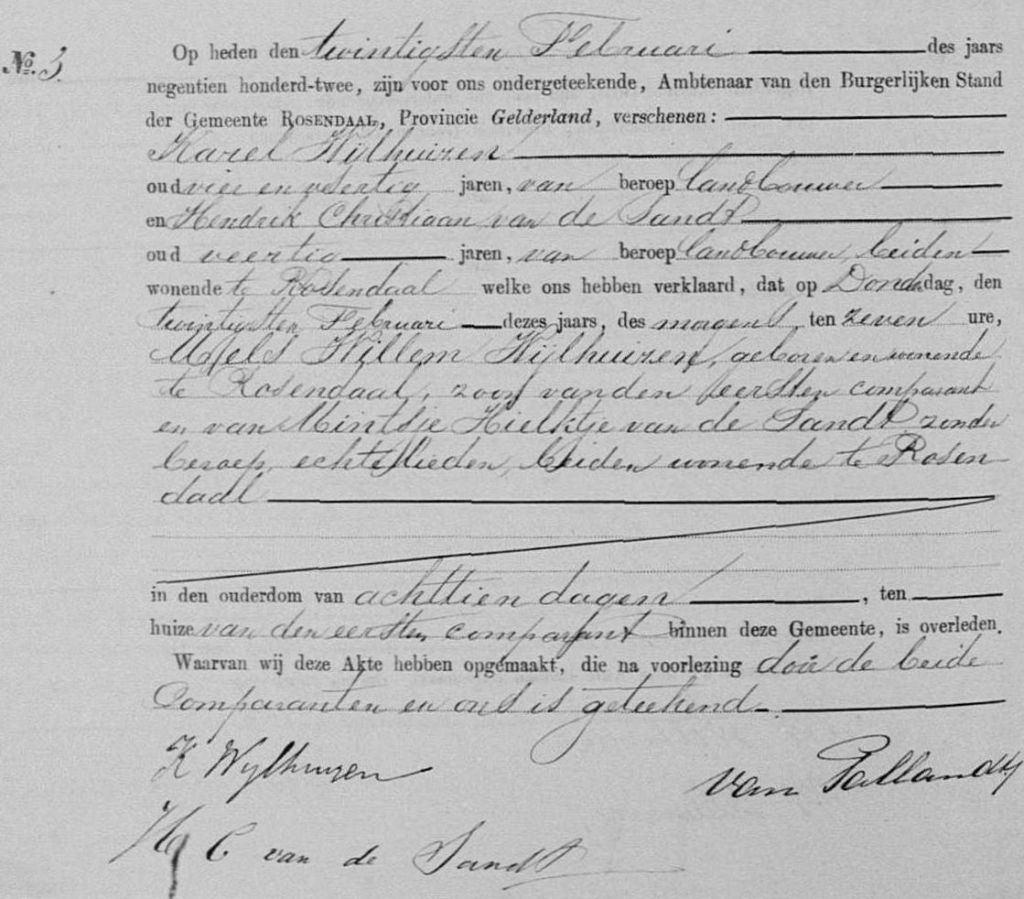 No. 3.
Op heden den twintigsten Februari des jaars
negentien honderd-twee, zijn voor ons ondergeteekende, Ambtenaar van den Burgerlijken Stand
der Gemeente ROSENDAAL, Provincie Gelderland, verschenen:
Karel Wijlhuizen
oud vier en veertig jaren, van beroep landbouwer
en Hendrik Christiaan van de Sandt
oud veertig jaren, van beroep landbouwer, beiden
wonende te Rosendaal welke ons hebben verklaard, dat op Donderdag, den
twintigsten Februari dezes jaars, des morgens ten zeven ure,
Willem Wijlhuizen, geboren en wonende
te Rosendaal, zoon van den eersten comparant
en van Mintje Hieltje van de Sandt zonder
beroep, echtelieden, beiden wonende te Rosen
daal
in den ouderdom van achttien dagen, ten
huize van den eersten comparant binnen deze Gemeente, is overleden.
Waarvan wij deze Akte hebben opgemaakt, die na voorlezing door de beide
Comparanten en ons is geteekend.
K Wylhuizen
van Pallandt
H C van de Sandt